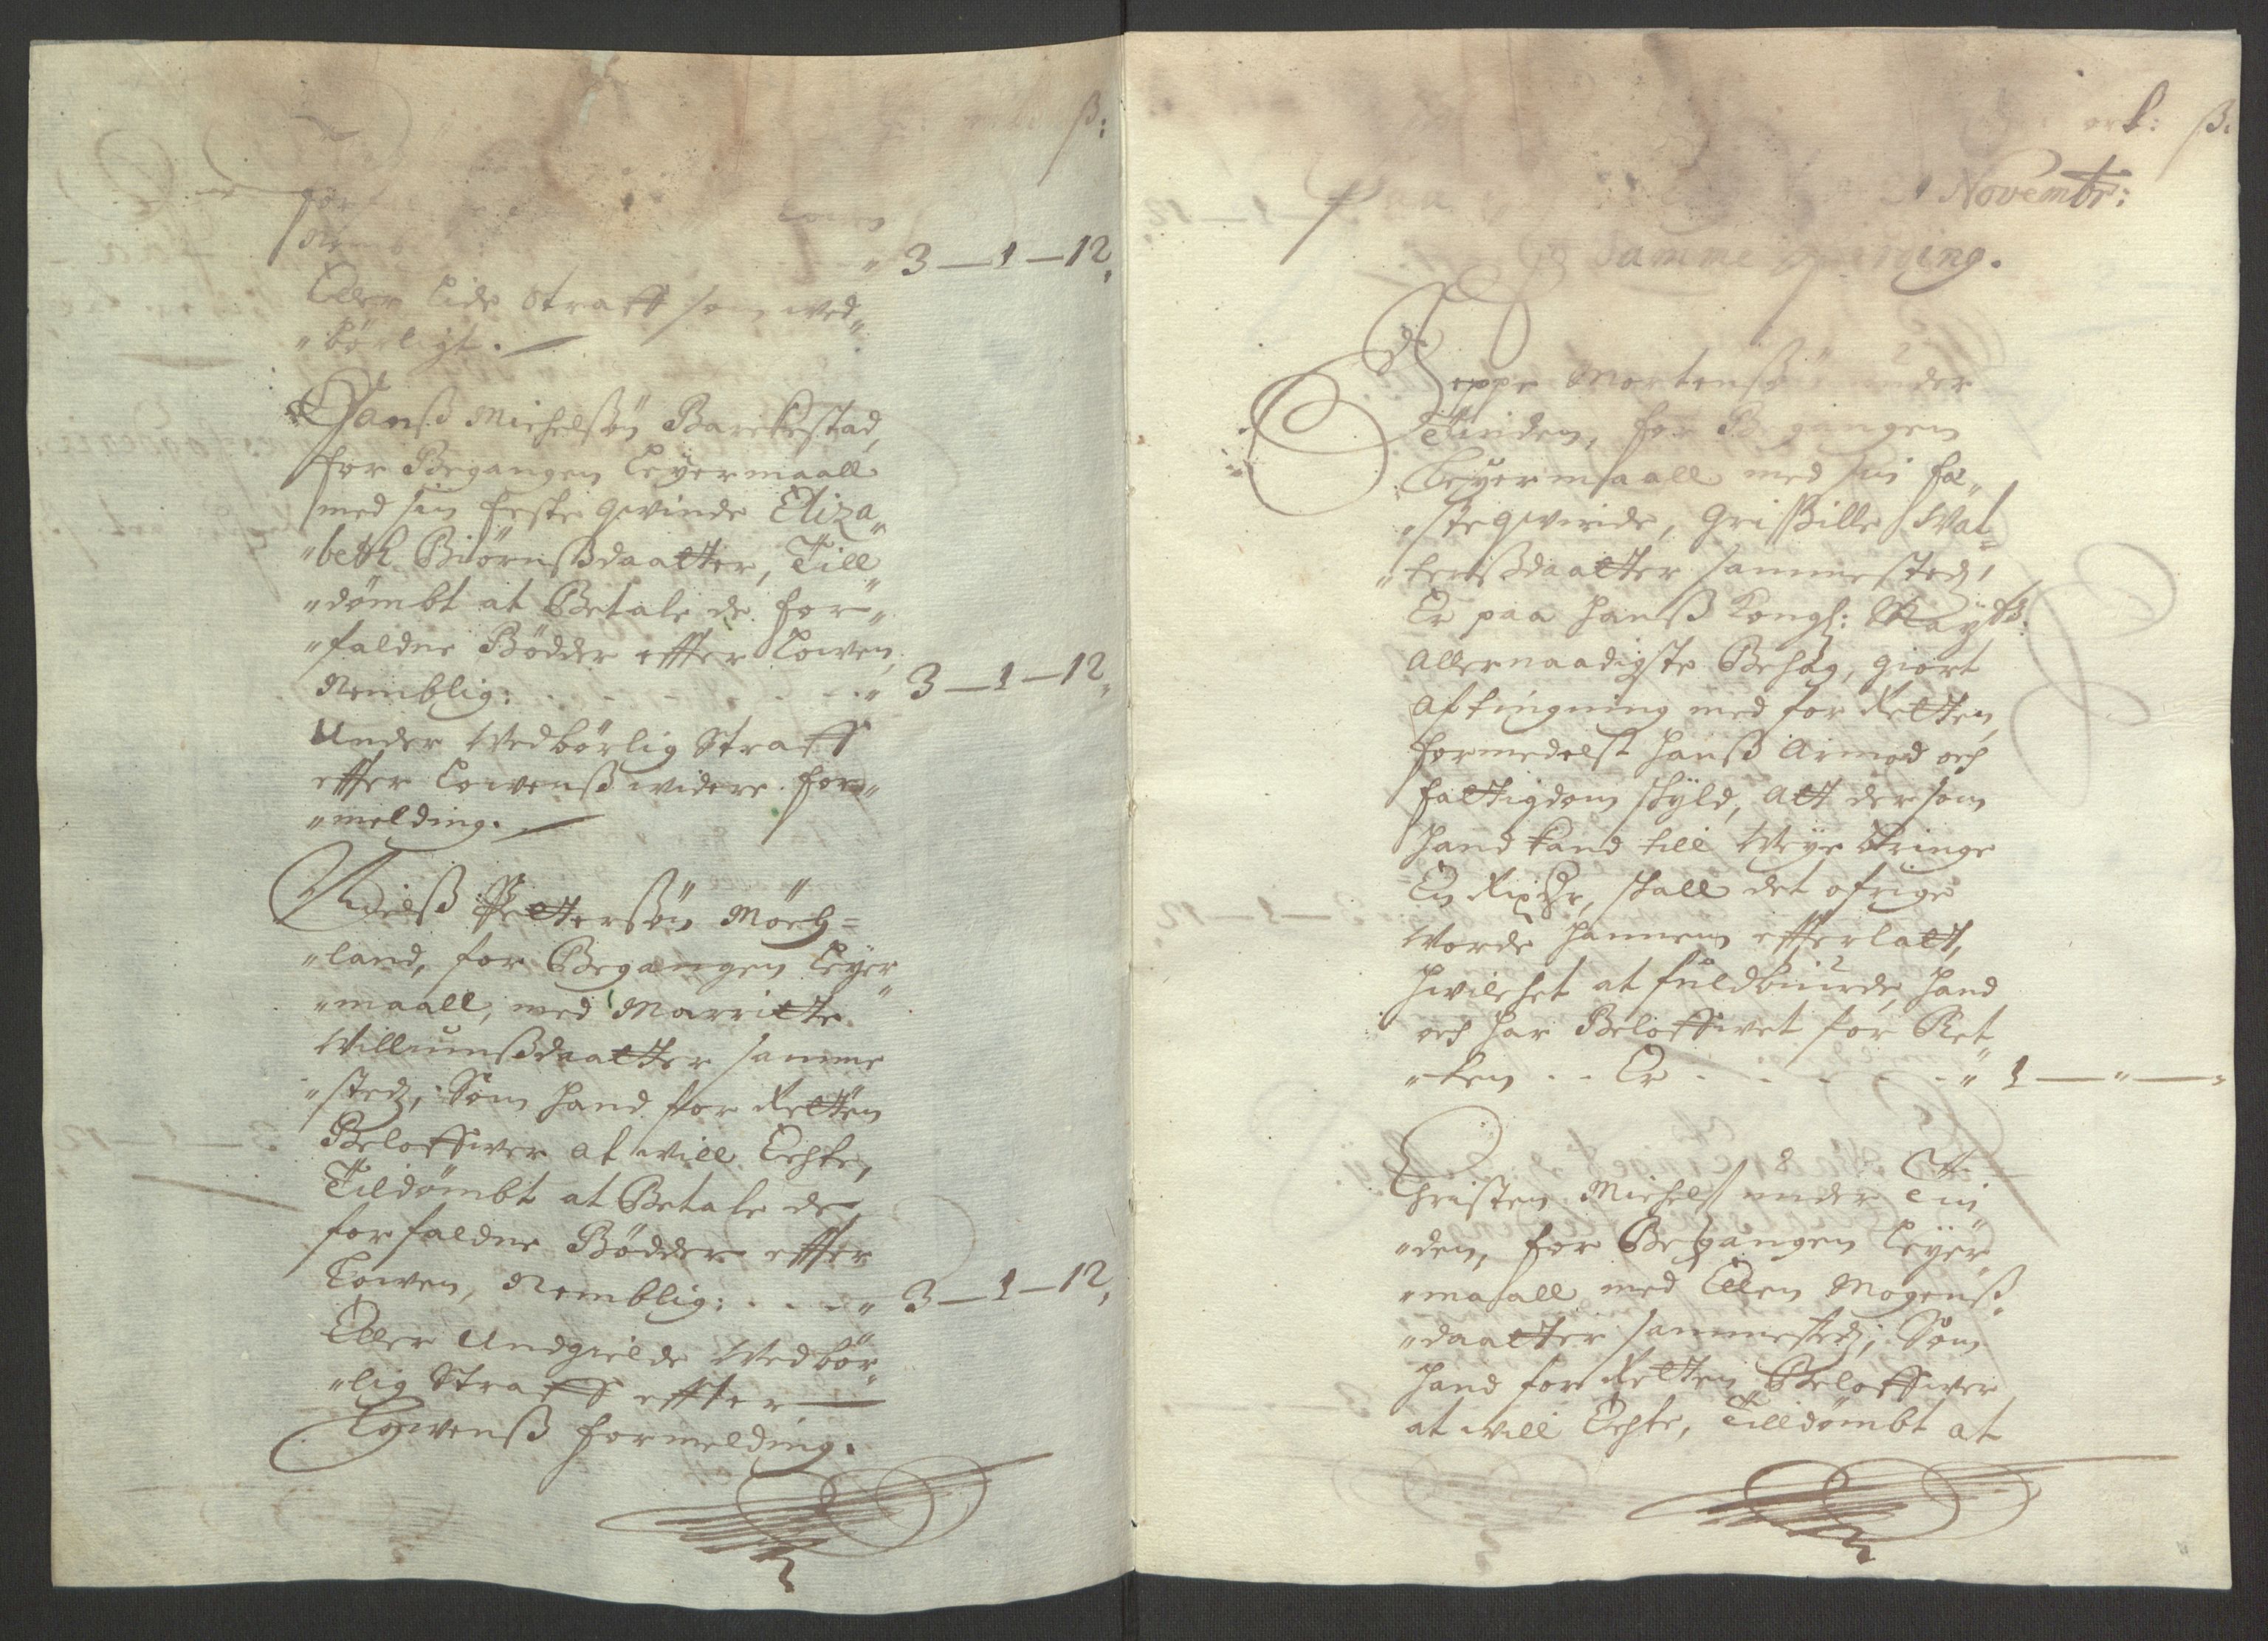 ß:
for
Lowen
Nemb
" 3 — 1 — 12,
Eller Lide Straff som wed„
„börligt.
Hanß Michelsön Barckestad,
for Begangen Leyermaall
med sin feste Qwinde Eliza„
„beth Biörnßdaatter, Till„
„dömbt at Betale de for„
„faldne Bödder effter Lowen,
Nemblig: . . . . " 3 — 1 — 12„
Under Wedbörlig Straff
effter Lowenß widere for„
„melding.
Nielß Pettersön Mörch=
„land, for Begangen Leyer„
„maall, med Marritte
Willumßdaatter samme
„stedz, Som hand for Retten
Beloffwer at will Echte,
Tildömbt at Betale de
forfaldne Bödder effter
Lowen, Nemblig: . . . " 3 — 1 — 12,
Eller Undgielde Wedbör„
„lig Straff effter
Lowenß formelding.
ort: ß.
Paa Novembr:
Samme
Jeppe Mortenßön under
Linden, for Begangen
Leyermaall med sin fæ„
„steqwinde, Grissille Wal=
„tersßdaatter sammestedz,
Er paa Hanß Kongl: Mayttz:
Allernaadigste Behag, giort
Aftingning med for Retten,
formedelst hanß Armod och
fattigdom skyld, Att dersom
hand kand till Weye bringe
En Rixdlr, skall det öfrige
Worde hannem effterlatt,
hwilchet at fuldbiurde, hand
och har Beloffwet for Ret„
„ten . . Er . . . . " 1 — " — "
Christen Michelß under Lin
„den, for Begangen Leyer„
„maall med Ellen Mogenß„
„daatter sammestedz, Som
hand for Retten Beloffwer
at will Echte, Tilldömbt at